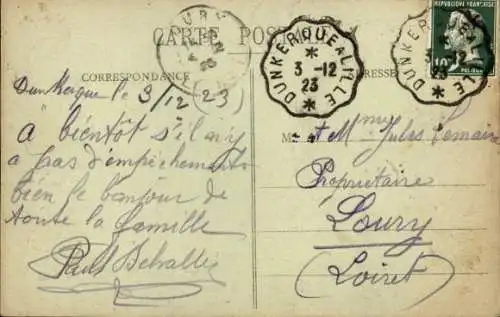 CARTE POSTALE
CORRESPONDANCE
ADRESSE
DUNKERQUE A LILLE
3-12
23
DUNKERQUE A LILLE
3-12
23
REPUBLIQUE FRANÇAISE
10c
Dunkerque le 3/12/23)
a bientôt s'il n'y
a pas d'empêchement
bien le bonjour de
toute la famille
Paul
M. et Mme Jules Lemaire
Propriétaire
Loury
(Loiret)